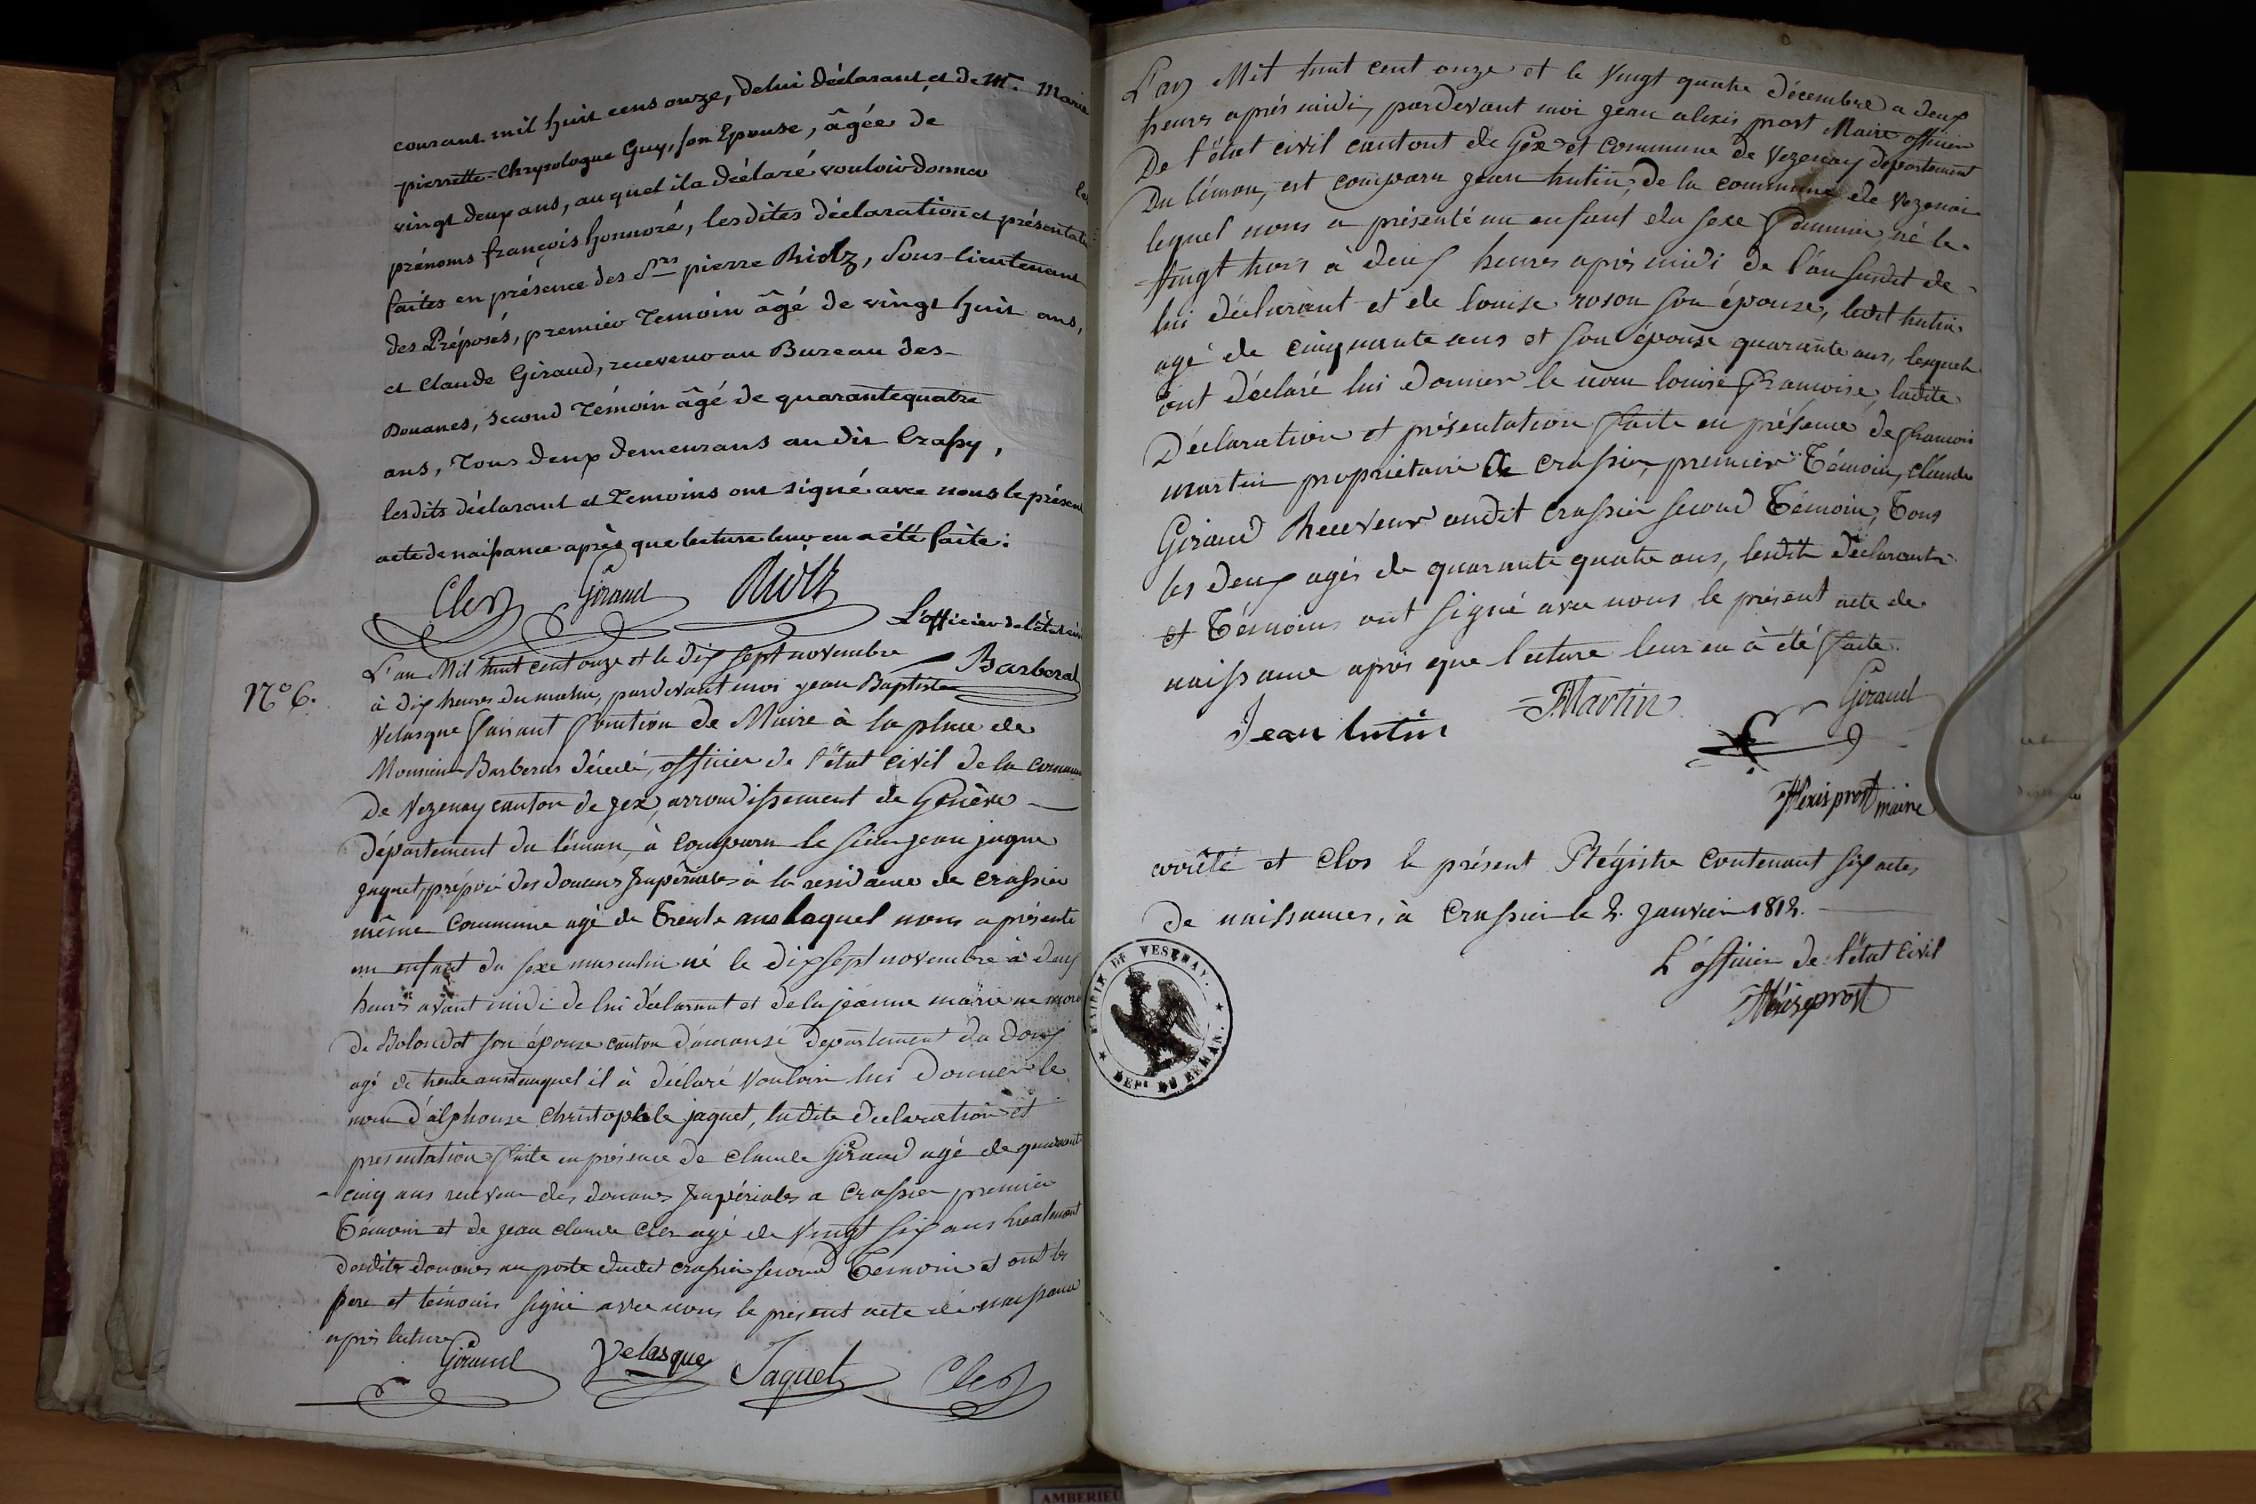 courant mil huit cens onze, de lui déclarant et de M.e Marie
pierrette-Chrysologue Guy, son Epouse, âgée de
vingt deux ans, auquel il a déclaré vouloir donner les
prénoms françois honnoré, lesdites déclaration et présentation
faites en présence des S.rs pierre Riotz, Sous-lieutenant
des Préposés, premier Temoin âgé de vingt huit ans,
et Claude Giraud, receveur au Bureau des
Douanes, second Témoin âgé de quarante quatre
ans, Tous deux demeurans au dit Crassy,
lesdits déclarant et Temoins ont signé avec nous le présent
acte de naissance après que lecture leur en a été faite:
Clerc Giraud Riotz
L'officier de l'état civil
Barberat
N° 6.
L'an Mil huit cent onze et le dix sept novembre
à dix heures du matin, pardevant moi jean Baptiste
Velasque faisant fonction de Maire à la place de
Monsieur Barberat décédé, officier de l'état civil de la commune
de Vezenay canton de gex, arrondissement de Genève
département du léman, à comparu le sieur jean jaque
jaquet, préposé des douanes Impériales à la residance de crassier
même commune agé de trente ans laquel nous a présenté
un enfant du sexe masculin né le dix sept novembre à deux
heures avant midi de lui déclarant et de la jeanne marie
de son épouse canton département du Doux
agé de trente ans auquel il à déclaré Vouloir lui donner le
nom d'alphonse christophle jaquet, ladite declaration et
presentation faite en présence de claude Giraud agé de quarante
cinq ans receveur des douanes Impériales a Crassier premier
Témoin et de jean claude Clerc agé de Vingt six ans lieutenant
desdites douanes au poste dudit crassier second Témoin et ont les
pere et témoins signé avec nous le present acte de naissance
après lecture
Giraud Velasque Jaquet Clerc
L'an Mil huit cent onze et le Vingt quatre décembre a deux
heures après midi, pardevant moi jean alexis prost Maire officier
De l'état civil cantont de Gex et commune de Vezenay departement
Du léman, est comparu jean hutin, de la commune de Vezenai
lequel nous a présenté un enfant du sexe féminin, né le
Vingt trois à deux heures après midi de l'an susdit de
lui déclarant et de louise roson son épouse, ledit hutin
agé de cinquante ans et son épouse quarante ans, lesquels
ont déclaré lui donner le nom louise francoise, ladite
Déclaration et présentation faite en présence de francois
martin propriétaire de crassier, premier Témoin, claude
Giraud Receveur audit crassier second Témoin, Tous
les deux agés de quarante quatre ans, lesdits déclarants
et Témoins ont signé avec nous le présent acte de
naissance après que lecture leur en à été faite.
Jean hutin
F Martin
Giraud
Alexis prost maire
arrêté et clos le présent Régistre contenant six actes
de naissances, à Crassier le 2. Janvier 1812.
L'officier de l'état civil
Alexis prost
MAIRIE DE VESENAY.
DEP.t DU LEMAN.
AMBERIEU